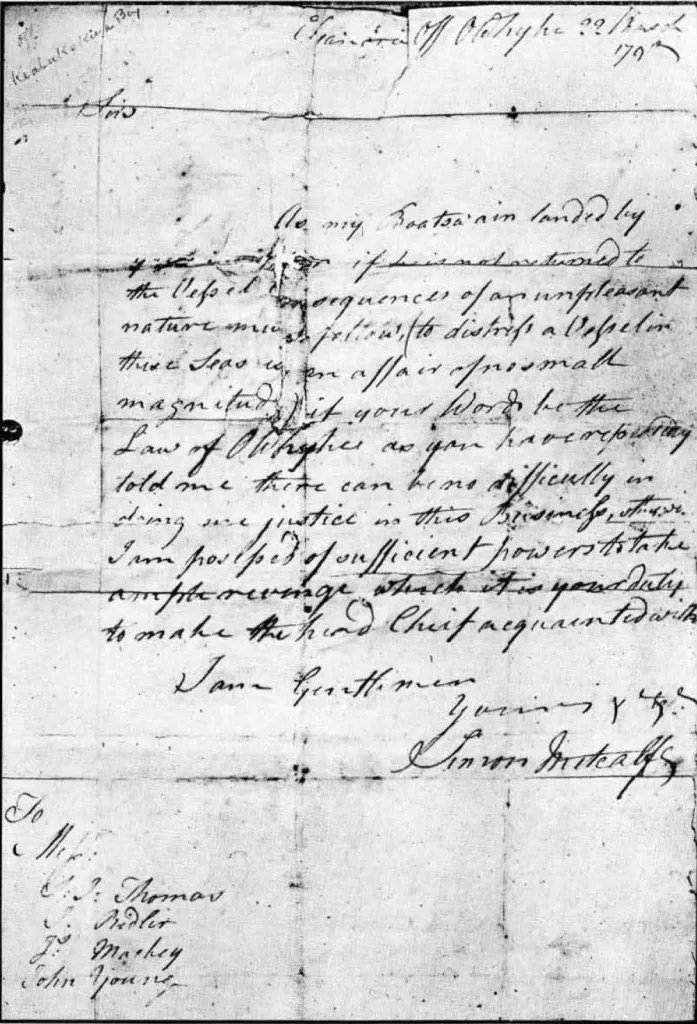 off
Kealakekua Bay
Eleanora Off Owhyhe 22 March
1790
Sirs
As my Boatswain landed by
if he is not returned to
the Vessel consequences of an unpleasant
nature must follow, (to distress a Vessel in
these Seas is an affair of no small
magnitude) if your Words be the
Law of Owhyhee as you have repeatedly
told me there can be no difficulty in
doing me justice in this Business, otherwise
I am possessed of sufficient powers to take
ample revenge which it is your duty
to make the head Chief acquainted with
I am Gentlimen
Yours &c &c
Simon Metcalfe
To
Messrs
Thomas
Ridler
Mackey
John Young